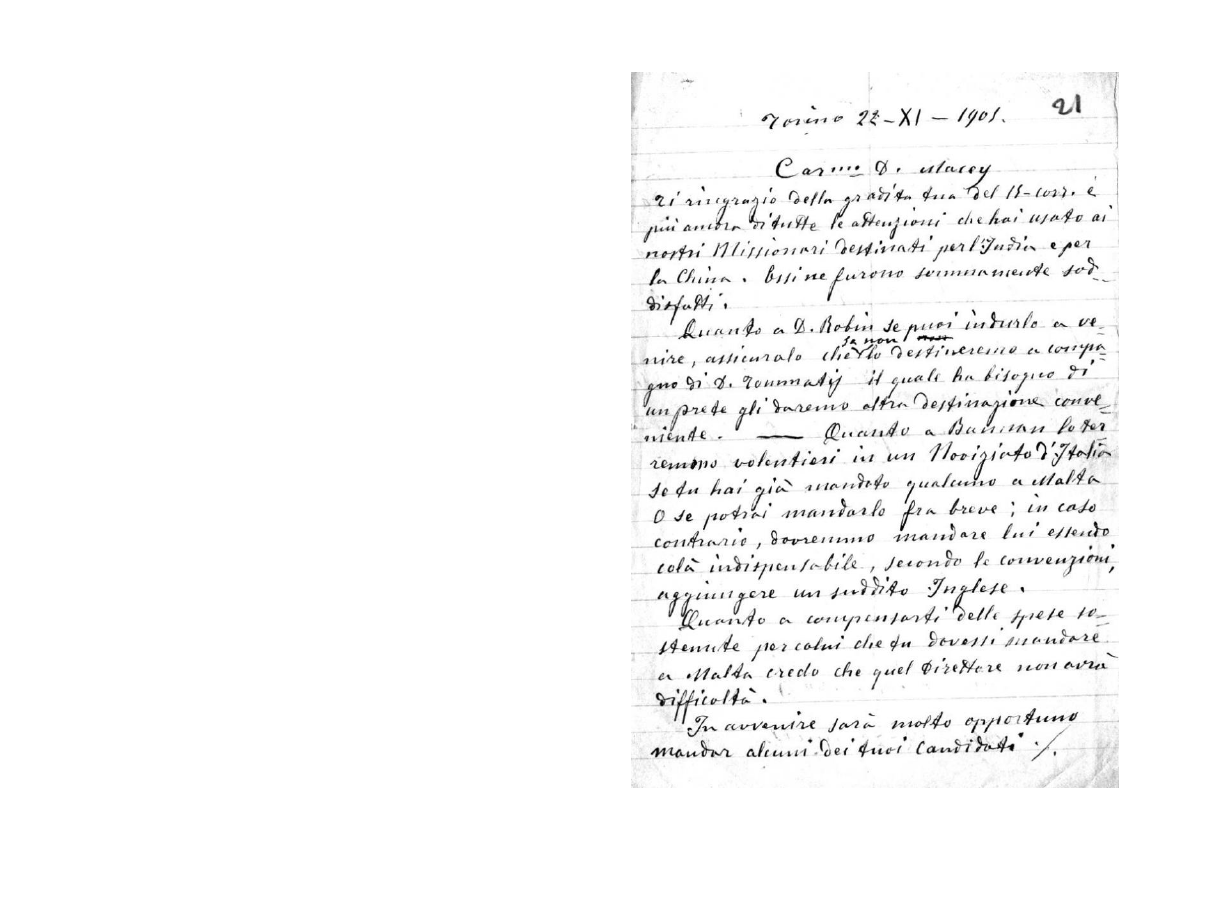 21
Torino 22-XI-1905.
Carmo D. Macey
Ti ringrazio della gradita tua del 15-corr. e
più ancora di tutte le attenzioni che hai usato ai
nostri Missionari destinati per l'India e per
la China. Essi ne furono sommamente sod-
disfatti.
Quanto a D. Robin se puoi indurlo a ve-
nire, assicuralo che se non lo destineremo a compa-
gno di D. Tommatis il quale ha bisogno di
un prete gli daremo altra destinazione conve-
niente. — Quanto a lo ter-
remmo volentieri in un Noviziato d'Italia
se tu hai già mandato qualcuno a Malta
o se potrai mandarlo fra breve; in caso
contrario, dovremmo mandare lui essendo
colà indispensabile, secondo le convenzioni,
aggiungere un suddito Inglese.
Quanto a compensarti delle spese so-
stenute per colui che tu dovessi mandare
a Malta credo che quel Direttore non avrà
difficoltà.
In avvenire sarà molto opportuno
mandar alcuni dei tuoi Candidati ./.